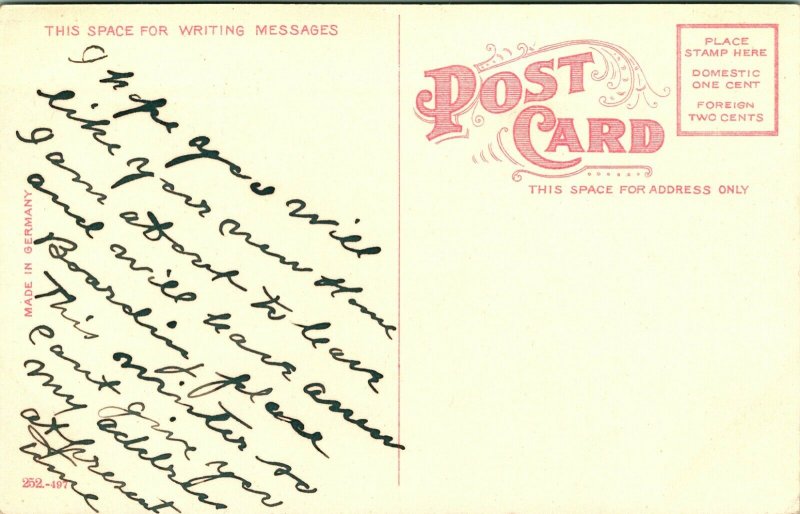 THIS SPACE FOR WRITING MESSAGES
I hope you will
like your new Home
I am about to leave
and will have a new
Boarding place
This winter so
cant give you
my address
at present
MADE IN GERMANY
252.-497
POST
CARD
THIS SPACE FOR ADDRESS ONLY
PLACE
STAMP HERE
DOMESTIC
ONE CENT
FOREIGN
TWO CENTS